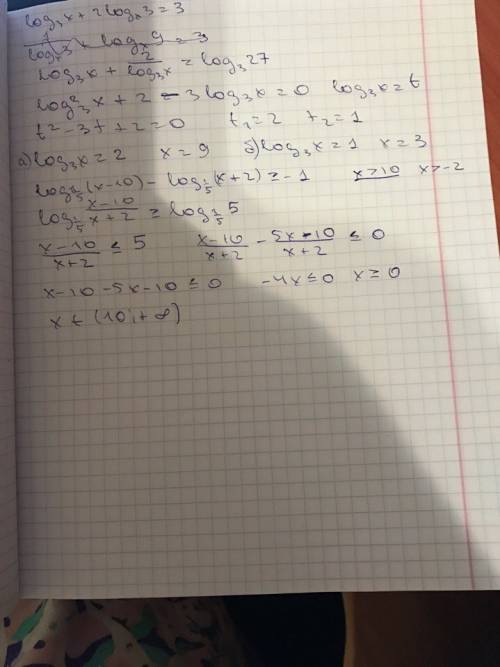 log₃x + 2logₓ3 = 3
1/logₓ3 + logₓ9 = 3
log₃x + 2/log₃x = log₃27
log²₃x + 2 - 3log₃x = 0   log₃x = t
t² - 3t + 2 = 0   t₁ = 2   t₂ = 1
а) log₃x = 2   x = 9   б) log₃x = 1   x = 3
log_{1/5}(x-10) - log_{1/5}(x+2) ≥ -1   x>10   x>-2
log_{1/5} (x-10)/(x+2) ≥ log_{1/5} 5
(x-10)/(x+2) ≤ 5   (x-10)/(x+2) - (5x-10)/(x+2) ≤ 0
x-10-5x-10 ≤ 0   -4x ≤ 0   x ≥ 0
x ∈ (10; +∞)